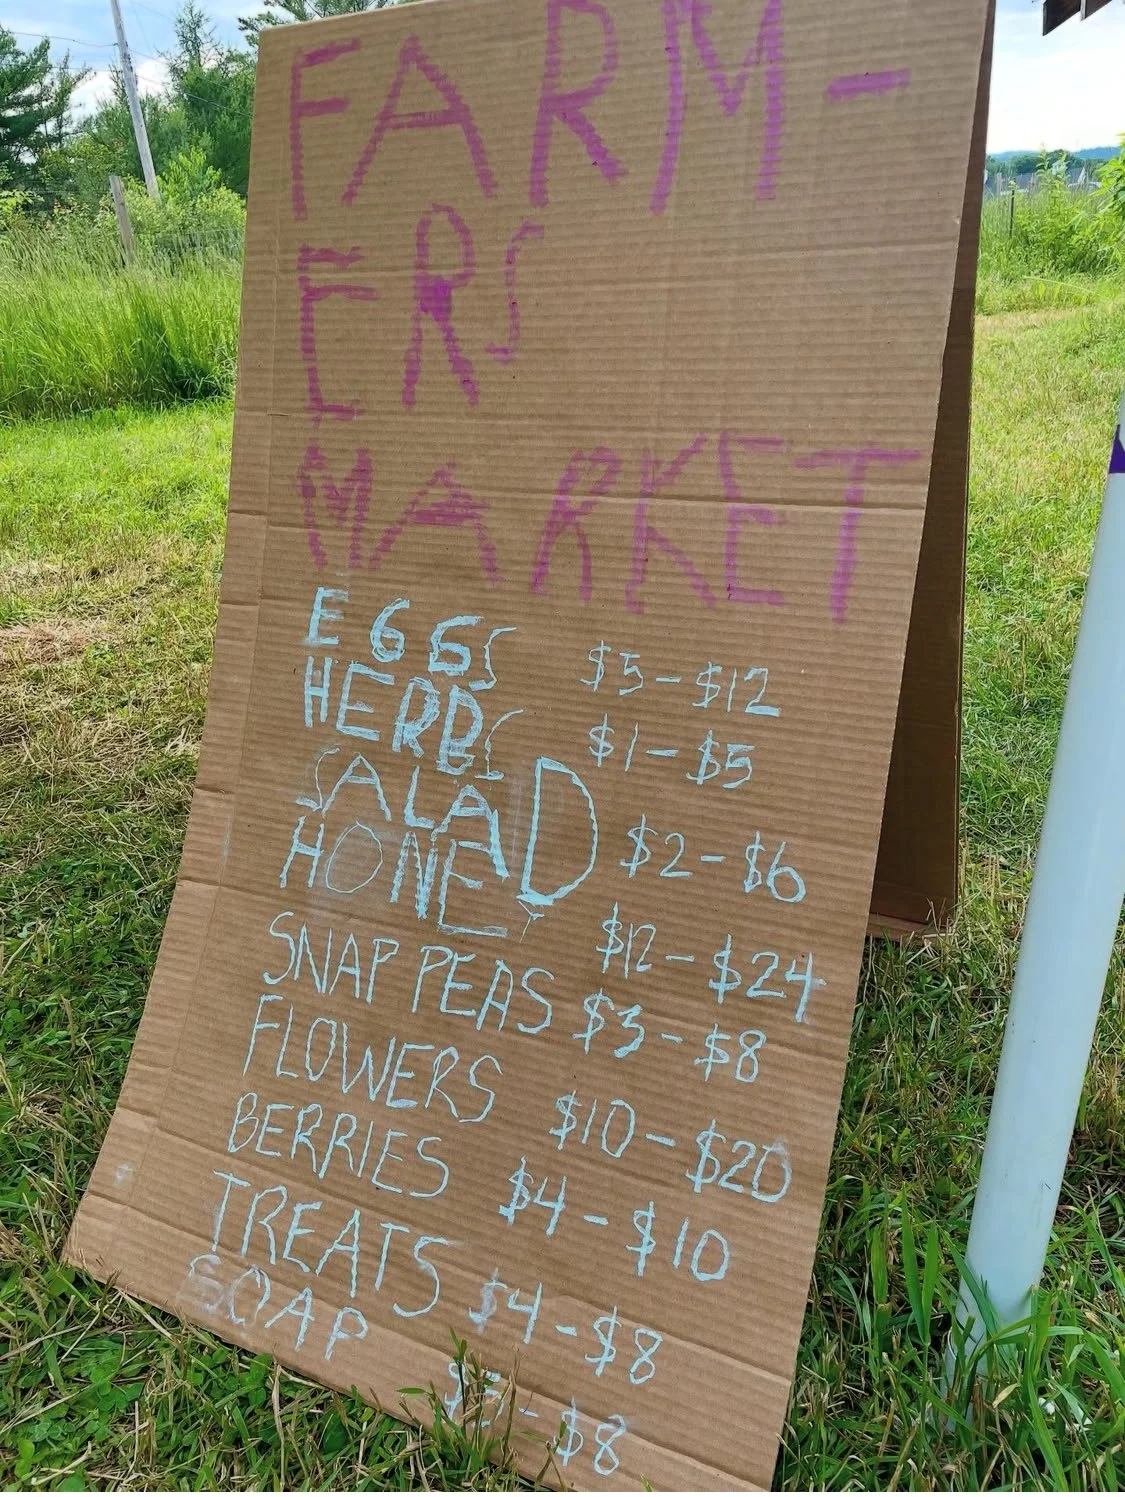 FARM-
ERS
MARKET
EGGS $5-$12
HERBS $1-$5
SALAD $2-$6
HONEY $12-$24
SNAP PEAS $3-$8
FLOWERS $10-$20
BERRIES $4-$10
TREATS $4-$8
SOAP $5-$8